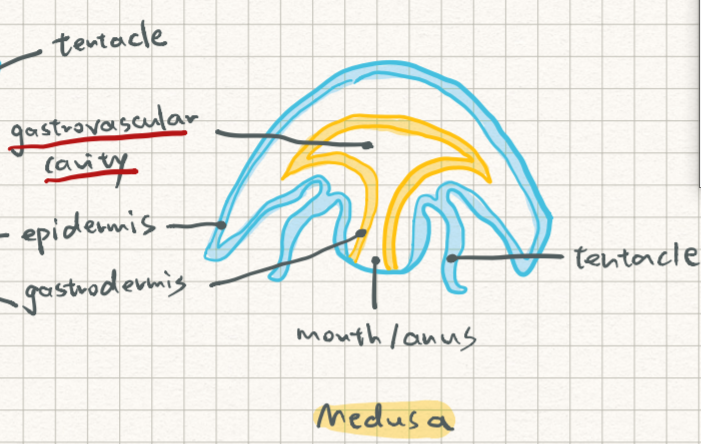 tentacle
gastrovascular
cavity
epidermis
gastrodermis
tentacle
mouth/anus
Medusa